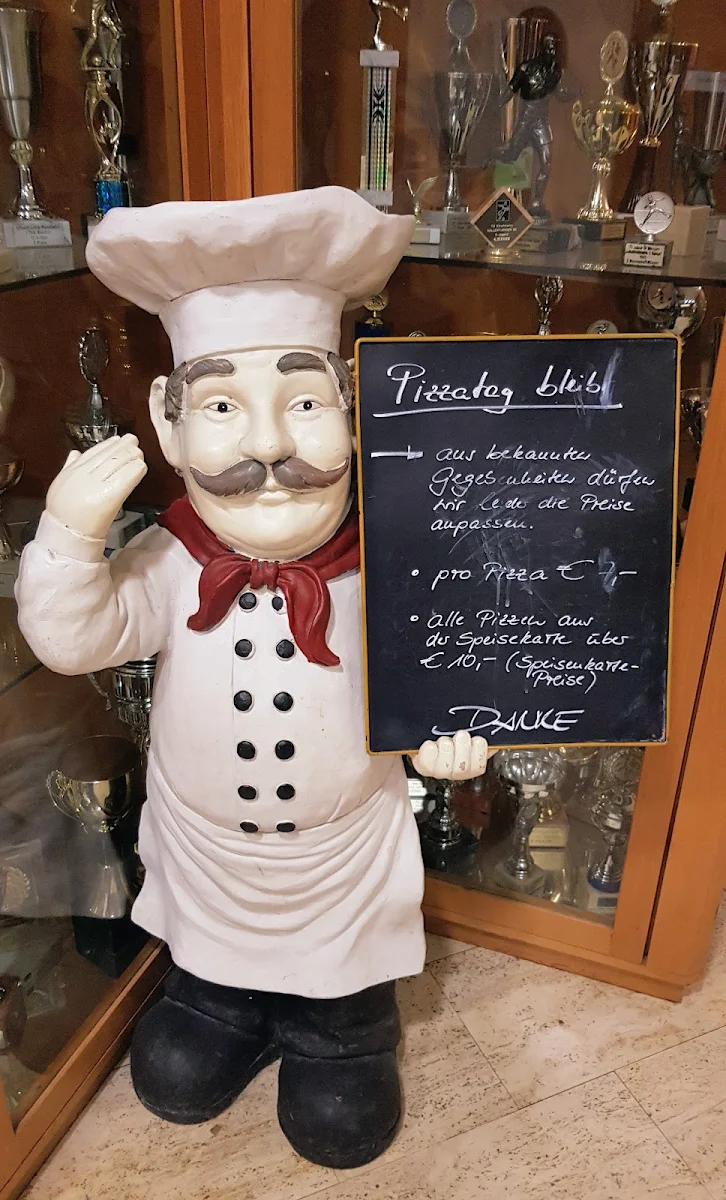 Pizzatag bleibt
aus bekannten
Gegebenheiten dürfen
wir leider die Preise
anpassen.
• pro Pizza € 7,-
• alle Pizzen aus
der Speisekarte über
€ 10,- (Speisenkarte-
Preise)
DANKE